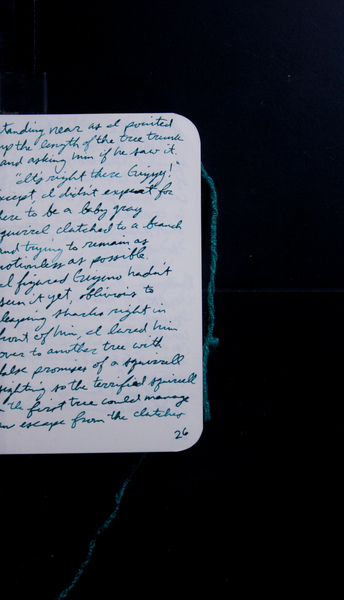 tanding near as I pointed
up the length of the tree trunk
and asking him if he saw it.
"It's right there Griggy!"
xcept, I didn't expect for
here to be a baby gray
quirrel clutched to a branch
and trying to remain as
motionless as possible.
I figured hadn't
seen it yet, oblivious to
leaping sharks right in
front of him, I lured him
over to another tree with
false promises of a squirrell
sighting so the terrified squirrell
in the first tree could manage
an escape from the clutches
26